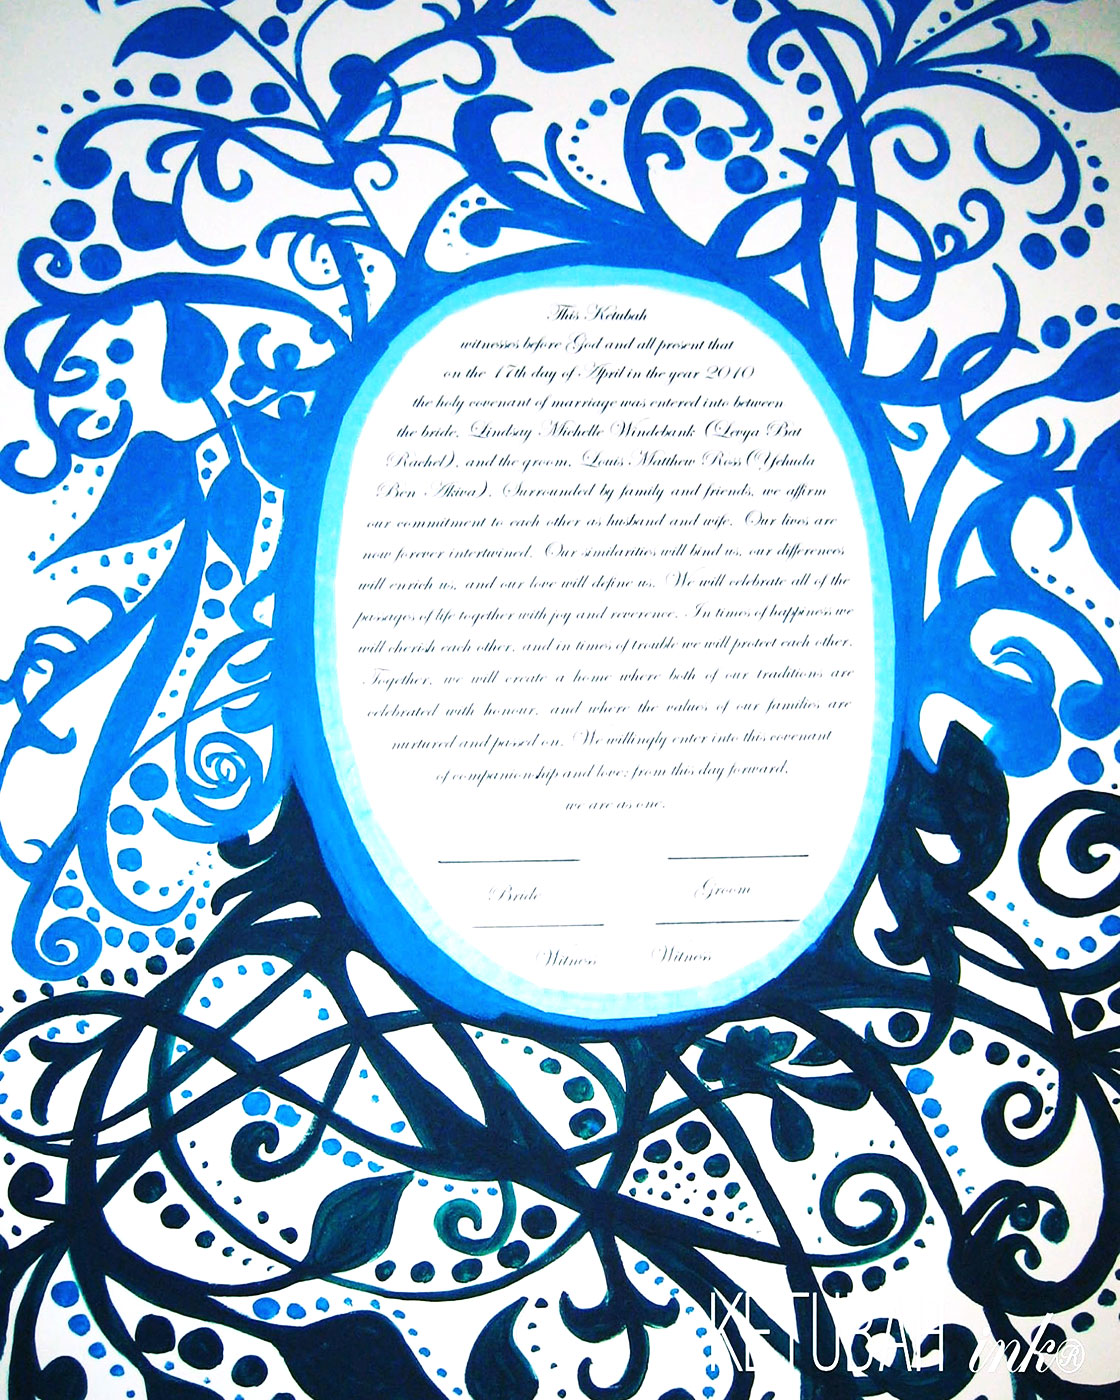 This Ketubah
witnesses before God and all present that
on the 17th day of April in the year 2010
the holy covenant of marriage was entered into between
the bride, Lindsay Michelle Windebank (Levya Bat
Rachel), and the groom, Louis Matthew Ross (Yehuda
Ben Akiva). Surrounded by family and friends, we affirm
our commitment to each other as husband and wife. Our lives are
now forever intertwined. Our similarities will bind us, our differences
will enrich us, and our love will define us. We will celebrate all of the
passages of life together with joy and reverence. In times of happiness we
will cherish each other, and in times of trouble we will protect each other.
Together, we will create a home where both of our traditions are
celebrated with honour, and where the values of our families are
nurtured and passed on. We willingly enter into this covenant
of companionship and love; from this day forward,
we are as one.
Bride Groom
Witness Witness
KETUBAH ink®